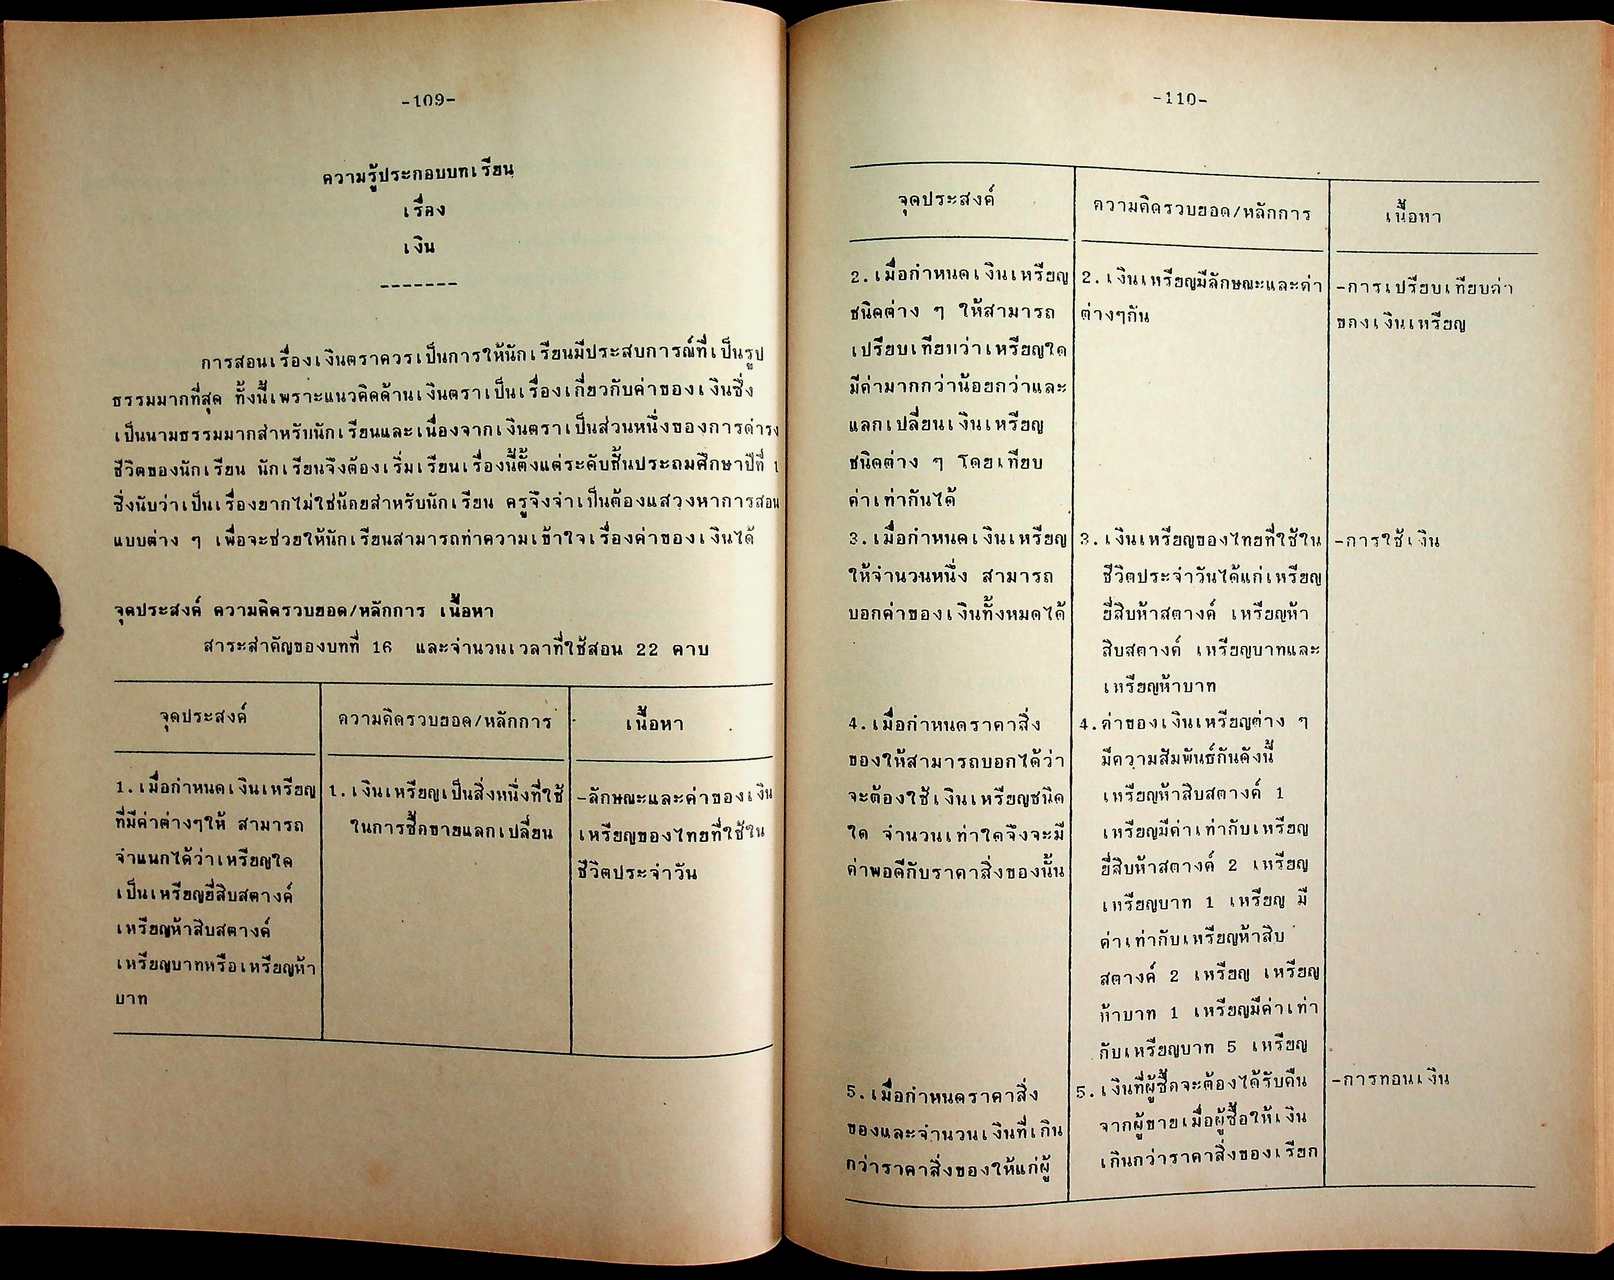 -109-
ความรู้ประกอบบทเรียน
เรื่อง
เงิน
-------
การสอนเรื่องเงินตราควรเป็นการให้นักเรียนมีประสบการณ์ที่เป็นรูป
ธรรมมากที่สุด ทั้งนี้เพราะแนวคิดด้านเงินตราเป็นเรื่องเกี่ยวกับค่าของเงินซึ่ง
เป็นนามธรรมมากสำหรับนักเรียนและเนื่องจากเงินตราเป็นส่วนหนึ่งของการดำรง
ชีวิตของนักเรียน นักเรียนจึงต้องเริ่มเรียนเรื่องนี้ตั้งแต่ระดับชั้นประถมศึกษาปีที่ 1
ซึ่งนับว่าเป็นเรื่องยากไม่ใช่น้อยสำหรับนักเรียน ครูจึงจำเป็นต้องแสวงหาการสอน
แบบต่าง ๆ เพื่อจะช่วยให้นักเรียนสามารถทำความเข้าใจเรื่องค่าของเงินได้
จุดประสงค์ ความคิดรวบยอด/หลักการ เนื้อหา
สาระสำคัญของบทที่ 16 และจำนวนเวลาที่ใช้สอน 22 คาบ
จุดประสงค์
1. เมื่อกำหนดเงินเหรียญ
ที่มีค่าต่างๆให้ สามารถ
จำแนกได้ว่าเหรียญใด
เป็นเหรียญยี่สิบสตางค์
เหรียญห้าสิบสตางค์
เหรียญบาทหรือเหรียญห้า
บาท
ความคิดรวบยอด/หลักการ
1. เงินเหรียญเป็นสิ่งหนึ่งที่ใช้
ในการซื้อขายแลกเปลี่ยน
เนื้อหา
-ลักษณะและค่าของเงิน
เหรียญของไทยที่ใช้ใน
ชีวิตประจำวัน
-110-
จุดประสงค์
2. เมื่อกำหนดเงินเหรียญ
ชนิดต่าง ๆ ให้สามารถ
เปรียบเทียบว่าเหรียญใด
มีค่ามากกว่าน้อยกว่าและ
แลกเปลี่ยนเงินเหรียญ
ชนิดต่าง ๆ โดยเทียบ
ค่าเท่ากันได้
3. เมื่อกำหนดเงินเหรียญ
ให้จำนวนหนึ่ง สามารถ
บอกค่าของเงินทั้งหมดได้
4. เมื่อกำหนดราคาสิ่ง
ของให้สามารถบอกได้ว่า
จะต้องใช้เงินเหรียญชนิด
ใด จำนวนเท่าใดจึงจะมี
ค่าพอดีกับราคาสิ่งของนั้น
5. เมื่อกำหนดราคาสิ่ง
ของและจำนวนเงินที่เกิน
กว่าราคาสิ่งของให้แก่ผู้
ความคิดรวบยอด/หลักการ
2. เงินเหรียญมีลักษณะและค่า
ต่างๆกัน
3. เงินเหรียญของไทยที่ใช้ใน
ชีวิตประจำวันได้แก่เหรียญ
ยี่สิบห้าสตางค์ เหรียญห้า
สิบสตางค์ เหรียญบาทและ
เหรียญห้าบาท
4. ค่าของเงินเหรียญต่าง ๆ
มีความสัมพันธ์กันดังนี้
เหรียญห้าสิบสตางค์ 1
เหรียญมีค่าเท่ากับเหรียญ
ยี่สิบห้าสตางค์ 2 เหรียญ
เหรียญบาท 1 เหรียญ มี
ค่าเท่ากับเหรียญห้าสิบ
สตางค์ 2 เหรียญ เหรียญ
ห้าบาท 1 เหรียญมีค่าเท่า
กับเหรียญบาท 5 เหรียญ
5. เงินที่ผู้ซื้อจะต้องได้รับคืน
จากผู้ขายเมื่อผู้ซื้อให้เงิน
เกินกว่าราคาสิ่งของเรียก
เนื้อหา
-การเปรียบเทียบค่า
ของเงินเหรียญ
-การใช้เงิน
-การทอนเงิน